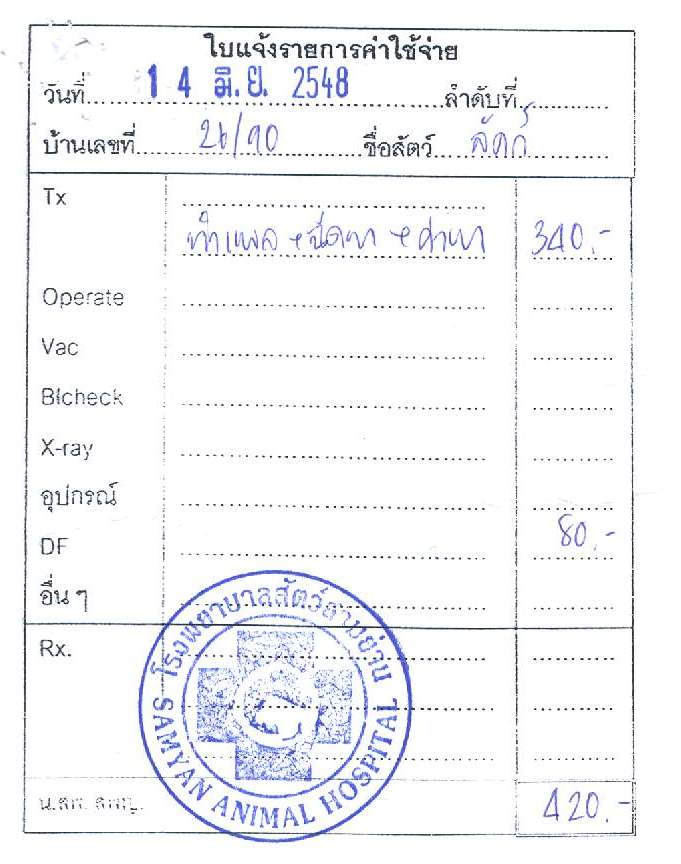 ใบแจ้งรายการค่าใช้จ่าย
วันที่ 14 มิ.ย. 2548 ลำดับที่
บ้านเลขที่ 26/90 ชื่อสัตว์ ลัคกี้
Tx
ทำแผล + ฉีดยา + ค่ายา 340.-
Operate
Vac
Blcheck
X-ray
อุปกรณ์
DF 80.-
อื่น ๆ
Rx.
โรงพยาบาลสัตว์สามย่าน
SAMYAN ANIMAL HOSPITAL
น.สพ. สพญ. 420.-